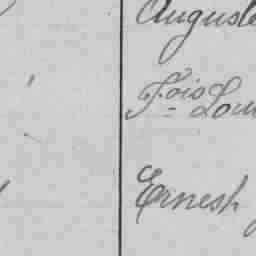 Auguste
Fois Lou
Ernest